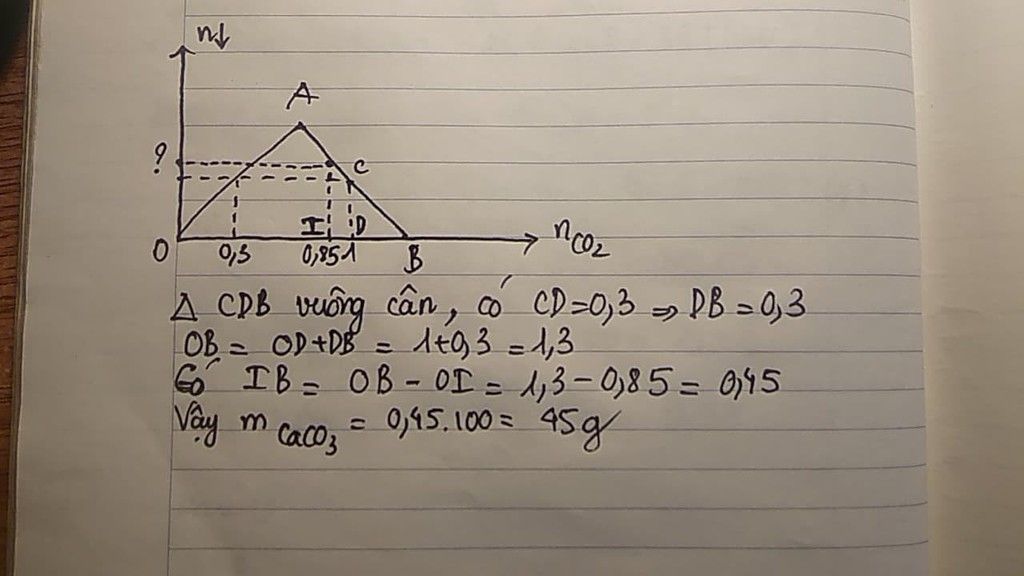 n↓
A
?
C
I D
O 0,3 0,85 1 B nCO₂
Δ CDB vuông cân, có CD=0,3 ⇒ DB=0,3
OB = OD+DB = 1+0,3 = 1,3
Có IB = OB - OI = 1,3 - 0,85 = 0,45
Vậy m CaCO₃ = 0,45.100 = 45g